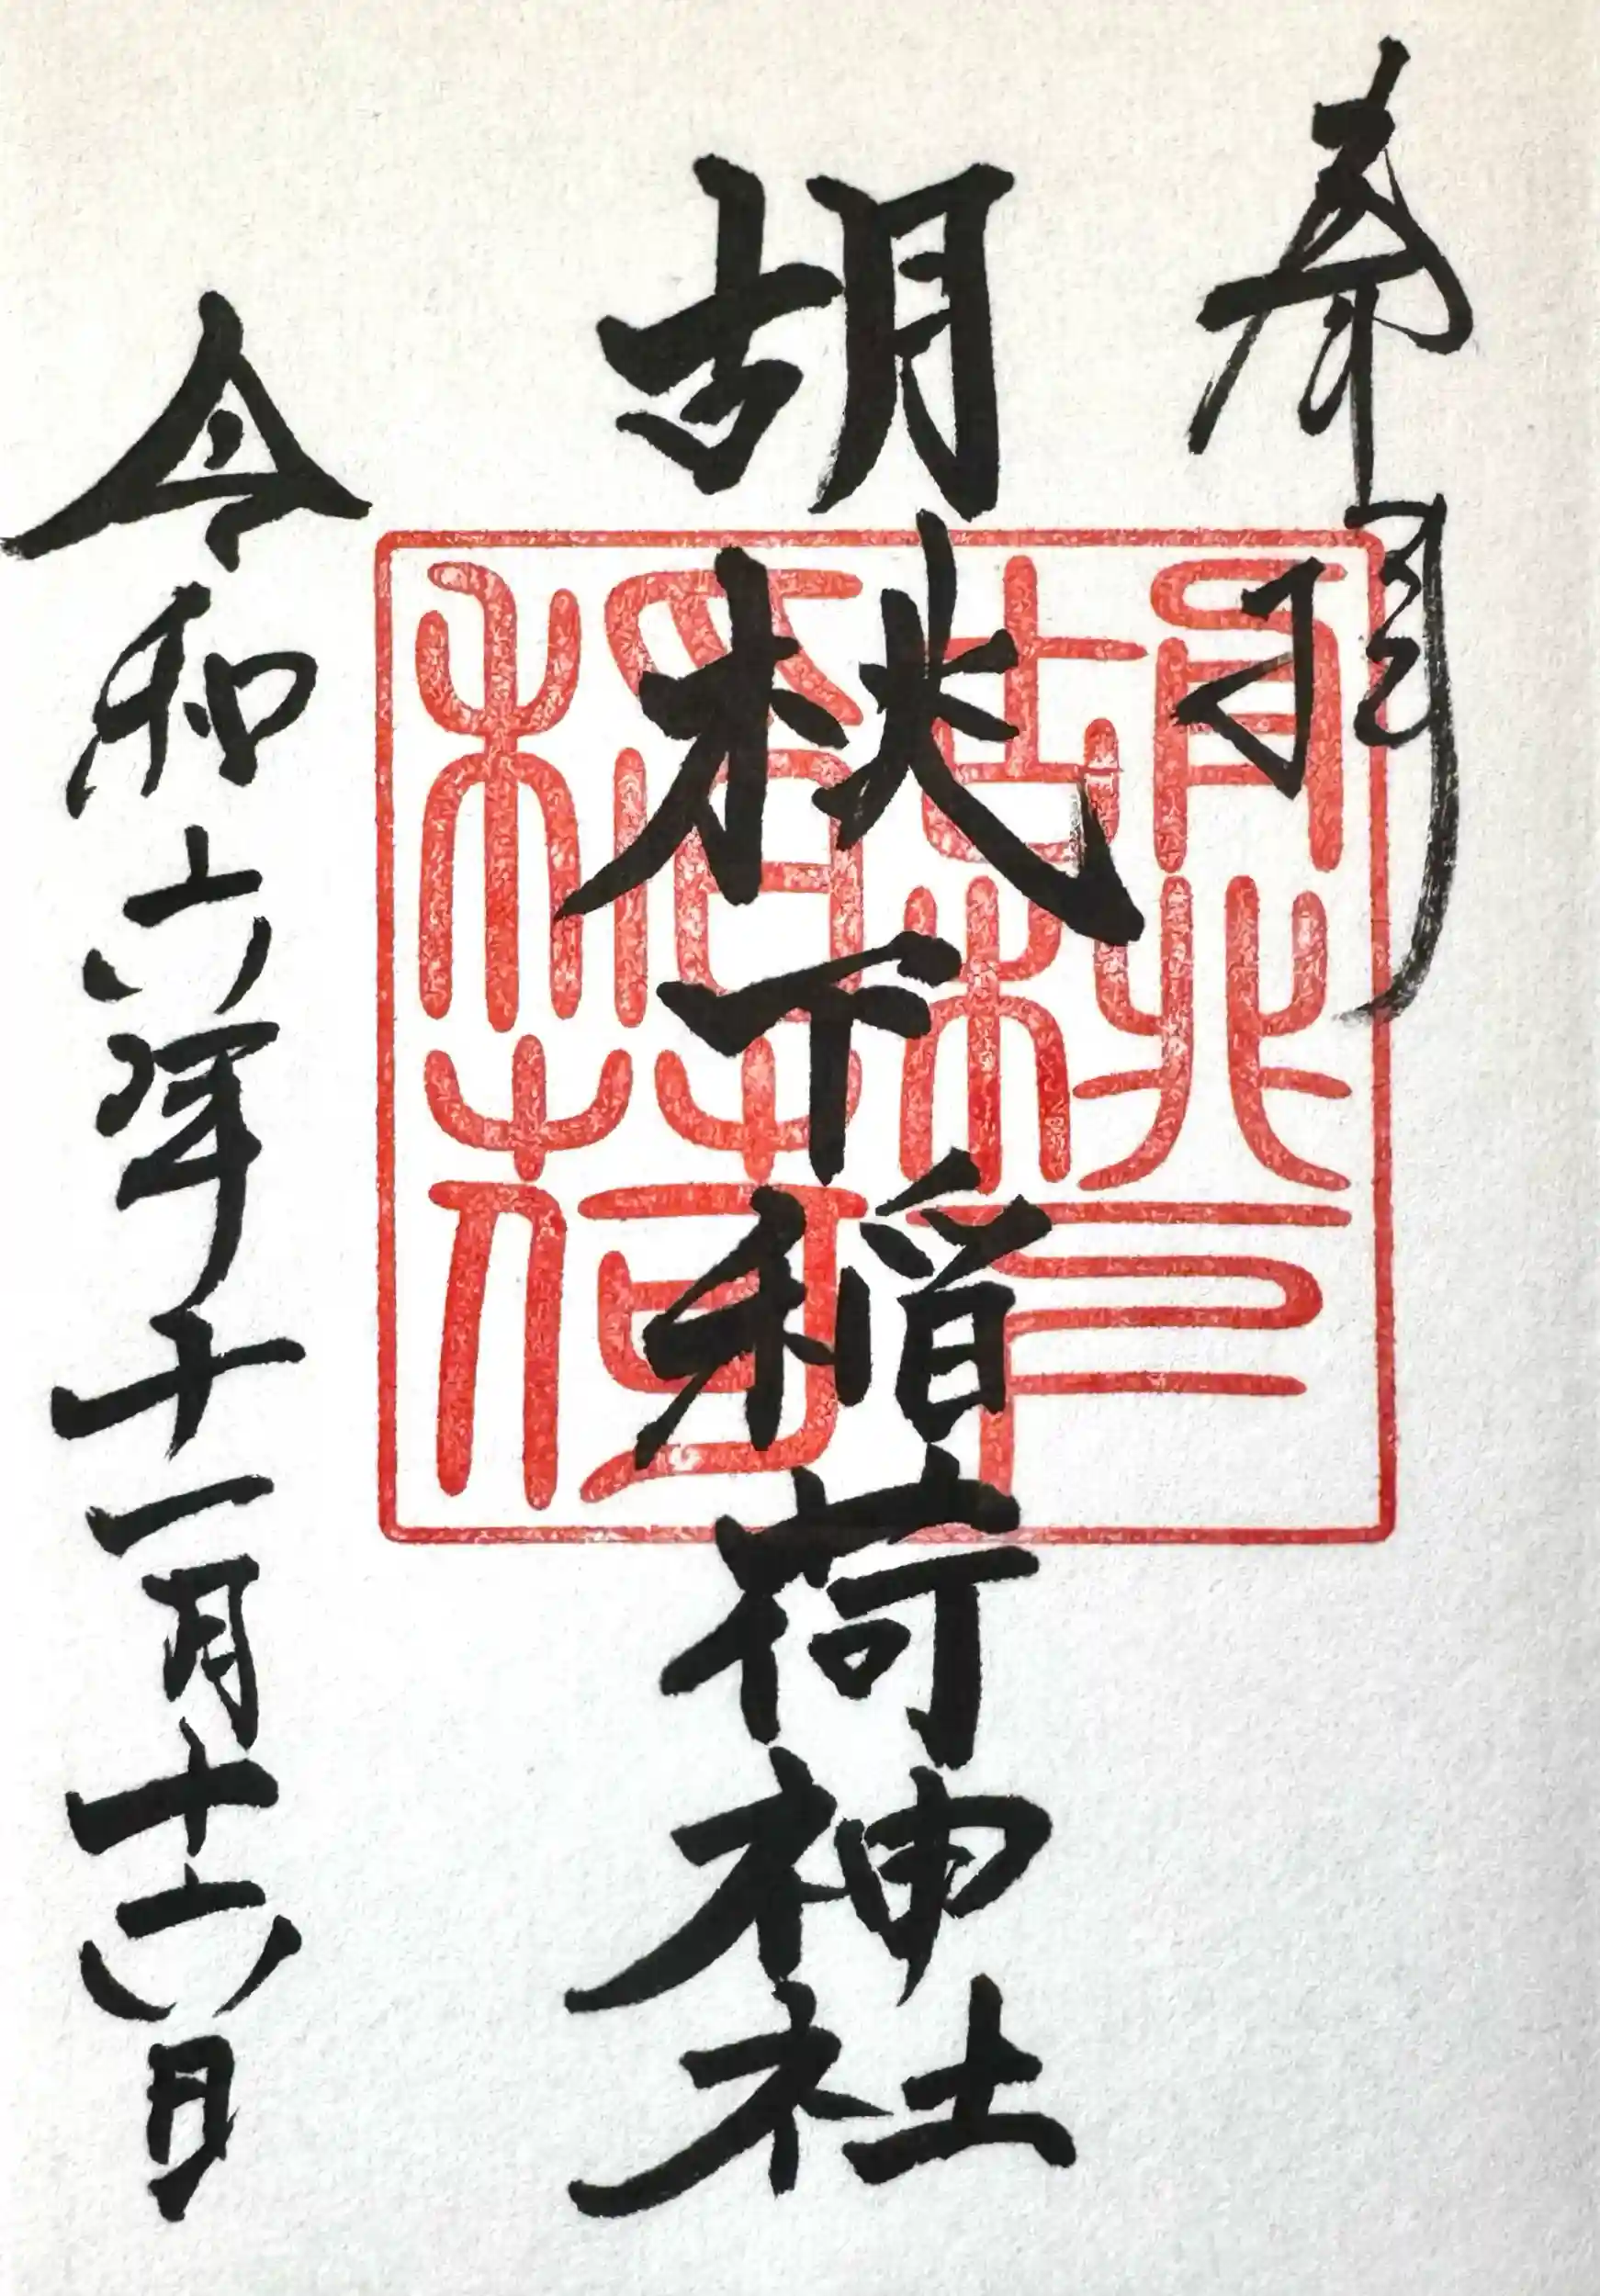 奉拝
胡桃下稲荷神社
令和六年十一月十六日
胡桃下
稲荷